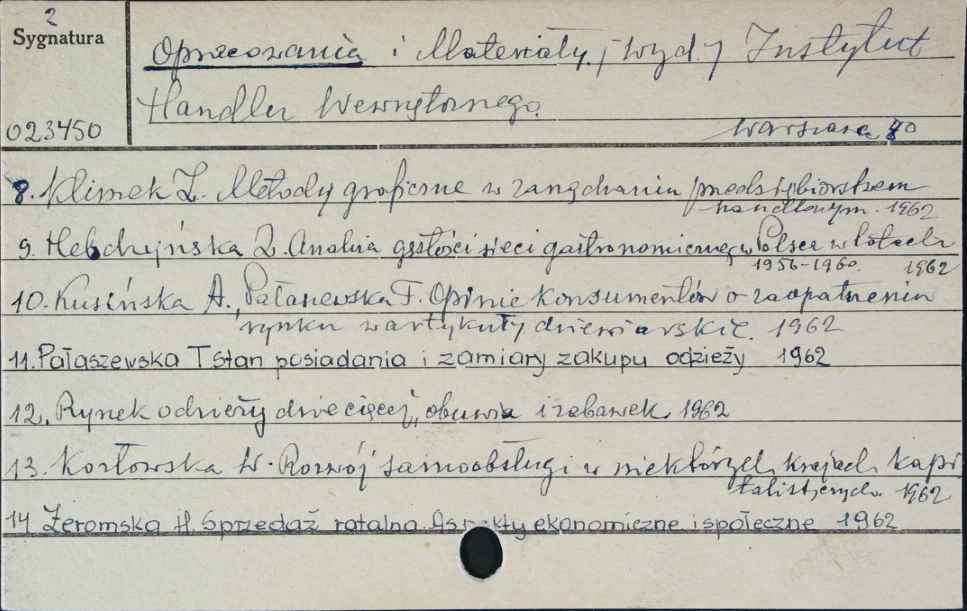 2
Sygnatura
Opracowania i Materiały. / Wyd. / Instytut
Handlu Wewnętrznego.
023450
Warszawa
8. Klimek Z. Metody graficzne w zarządzaniu przedsiębiorstwem
handlowym. 1962
9. Hebdzyńska Z. Analiza gęstości sieci gastronomicznej w Polsce w latach
1956-1960. 1962
10. Kusińska A., Pałaszewska T. Opinie konsumentów o zaopatrzeniu
rynku w artykuły dziewiarskie. 1962
11. Pałaszewska T Stan posiadania i zamiary zakupu odzieży 1962
12. Rynek odzieży dziecięcej, obuwia i zabawek. 1962
13. Kozłowska W. Rozwój samoobsługi w niektórych krajach kapi
talistycznych. 1962
14 Żeromska H. Sprzedaż ratalna. Aspekty ekonomiczne i społeczne 1962